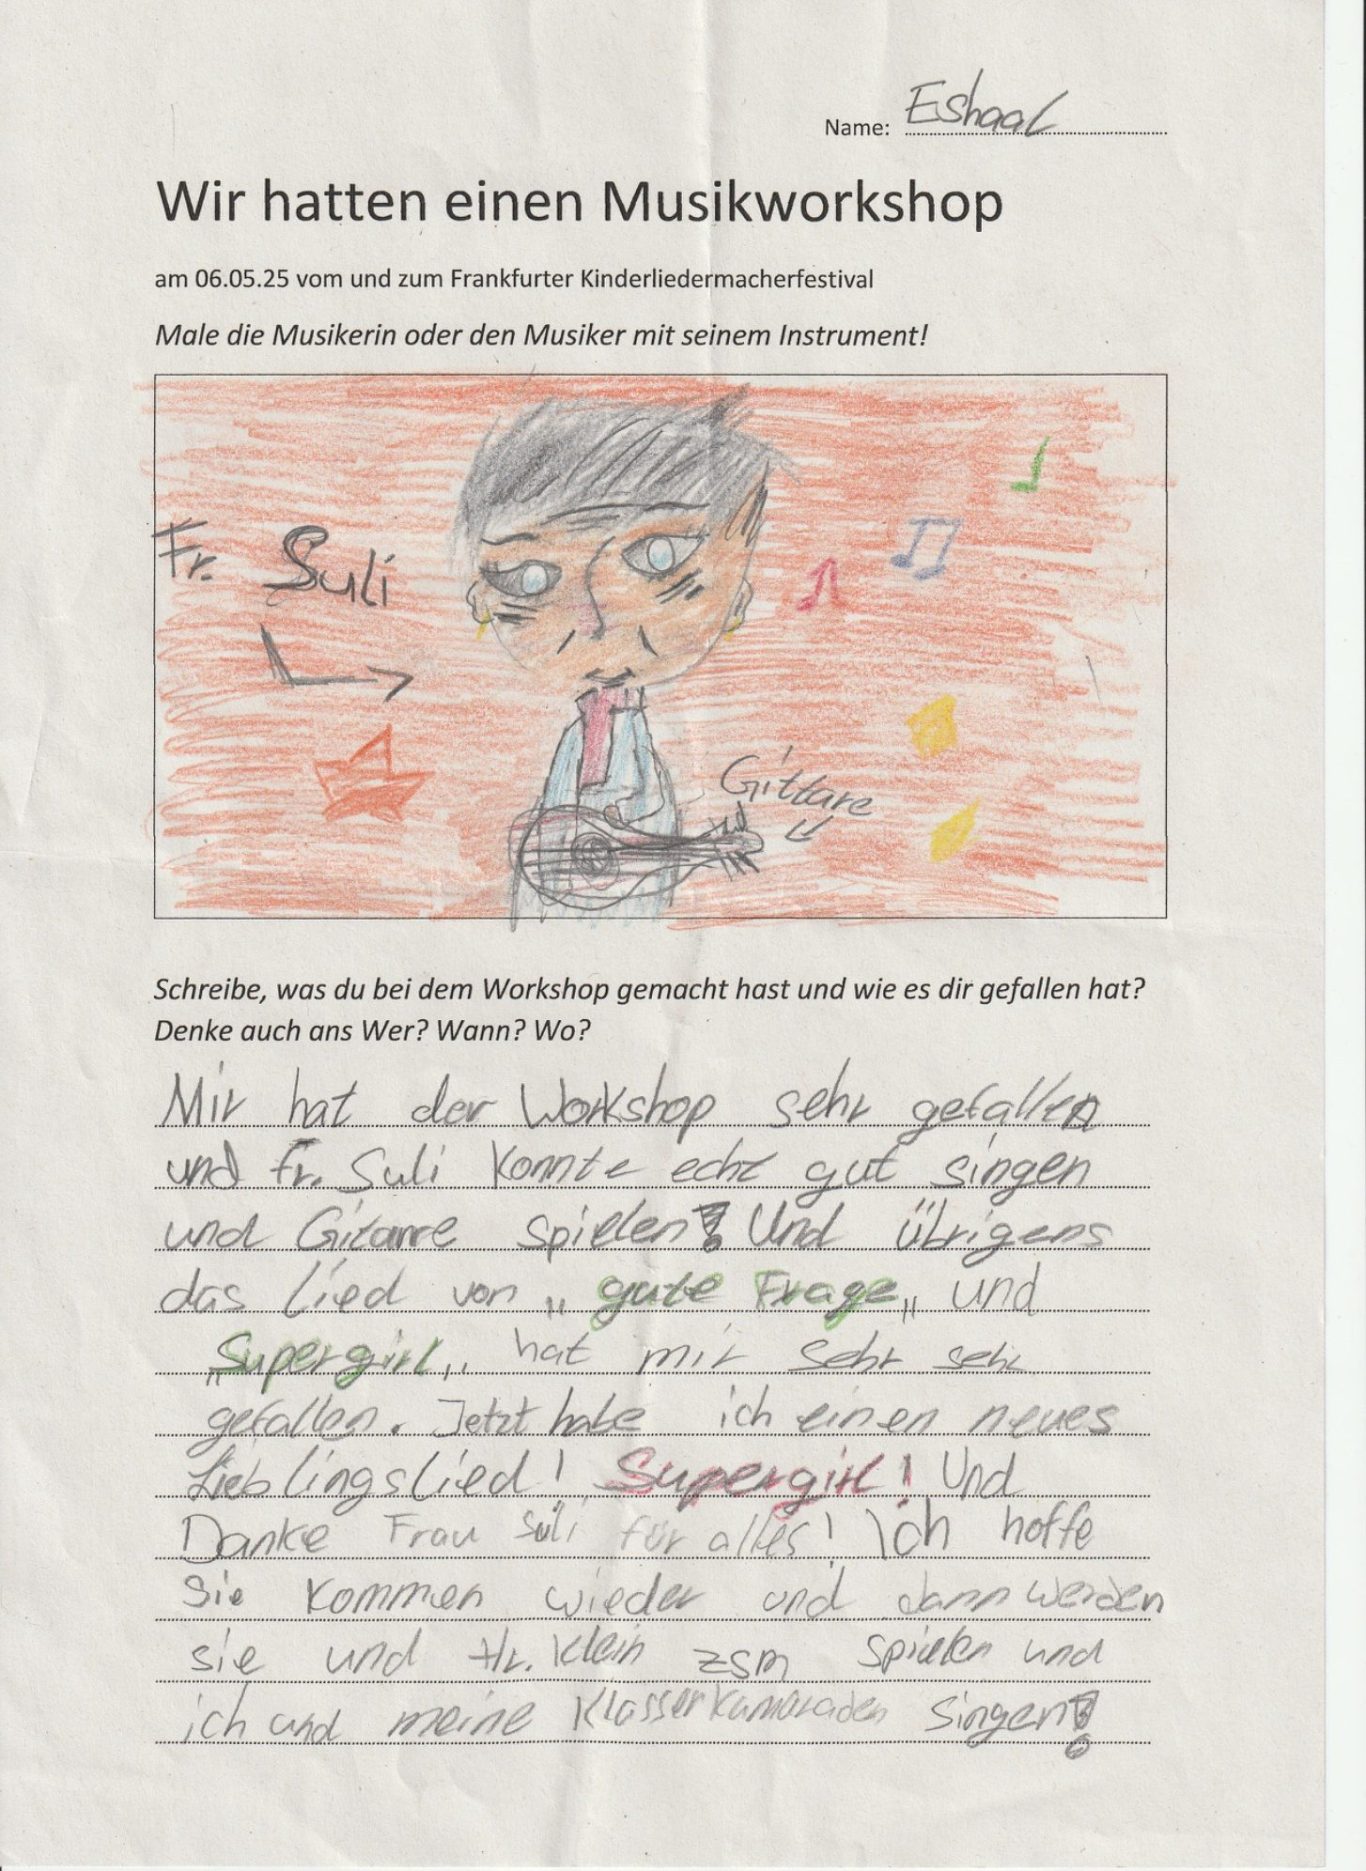 Name: Eshaal
Wir hatten einen Musikworkshop
am 06.05.25 vom und zum Frankfurter Kinderliedermacherfestival
Male die Musikerin oder den Musiker mit seinem Instrument!
Fr. Suli
Gittare
Schreibe, was du bei dem Workshop gemacht hast und wie es dir gefallen hat?
Denke auch ans Wer? Wann? Wo?
Mir hat der Workshop sehr gefallen
und Fr. Suli konnte echt gut singen
und Gitarre spielen! Und übrigens
das Lied von „gute Frage„ und
„Supergirl„ hat mir sehr sehr
gefallen. Jetzt habe ich einen neues
Lieblingslied! Supergirl! Und
Danke Frau Suli für alles! Ich hoffe
Sie kommen wieder und dann werden
sie und Hr. Klein zsm spielen und
ich und meine Klassenkamaraden singen!